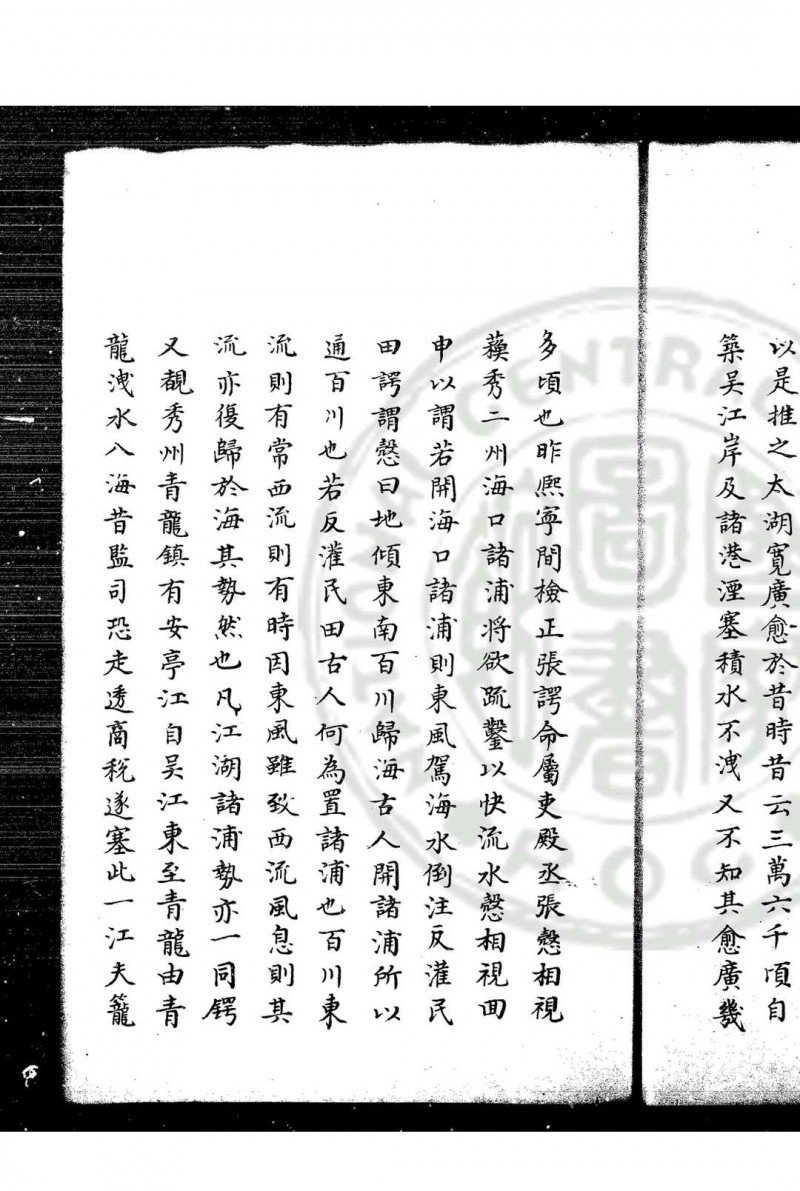 以是推之太湖寬廣愈於昔時昔云三萬六千頃自
築吴江岸及諸港湮塞積水不洩又不知其愈廣幾
多頃也昨熈寧間檢正張諤命屬吏殿丞張慤相視
蘓秀二州海口諸浦將欲疏鑿以快流水慤相視回
申以謂若開海口諸浦則東風駕海水倒注反灌民
田諤謂慤曰地傾東南百川歸海古人開諸浦所以
通百川也若反灌民田古人何為置諸浦也百川東
流則有常西流則有時因東風雖致西流風息則其
流亦復歸於海其勢然也凡江湖諸浦勢亦一同鍔
又覩秀州青龍鎮有安亭江自吴江東至青龍由青
龍洩水入海昔監司恐走透商稅遂塞此一江夫籠
CENTRA